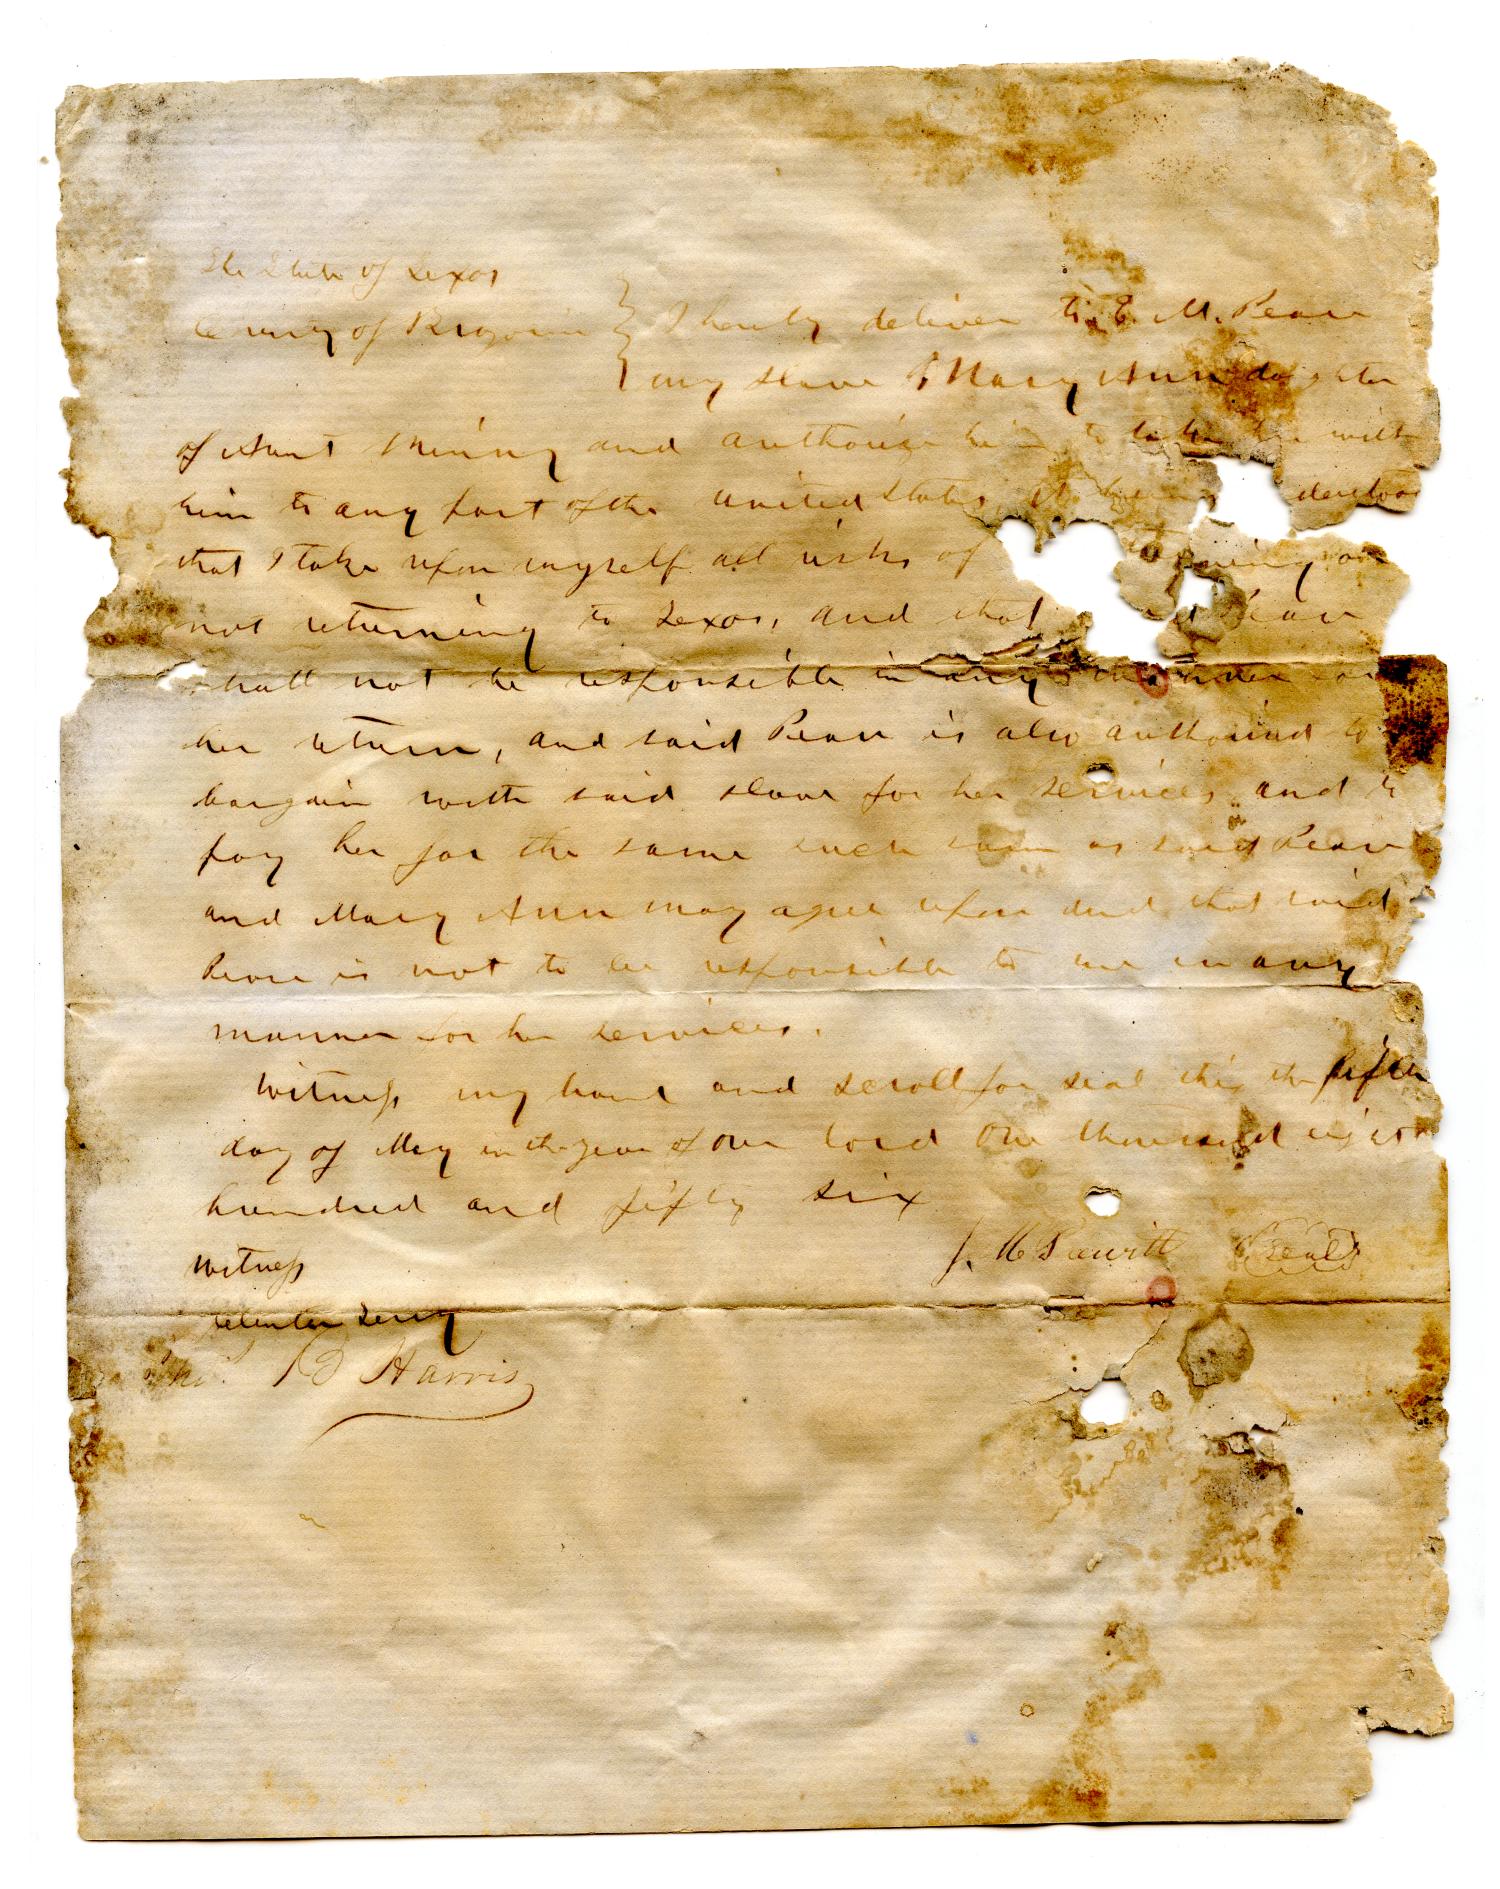 The State of Texas
County of Brazoria } I hereby deliver to E. M. Pease
my slave Mary Ann daughter
of Aunt and authorise him to take her with
him to any part of the united States, it being
that I take upon myself all risks of
not returning to Texas, and that Pease
shall not be responsible in any manner for
her return, and said Pease is also authorised to
bargain with said slave for her services and to
pay her for the same such sum as said Pease
and Mary Ann may agree upon and that said
Pease is not to be responsible to me in any
manner for her services.
Witness my hand and scroll for seal this the fifth
day of May in the year of our lord one thousand eight
hundred and fifty six
Witness J. (Seal)
B Harris